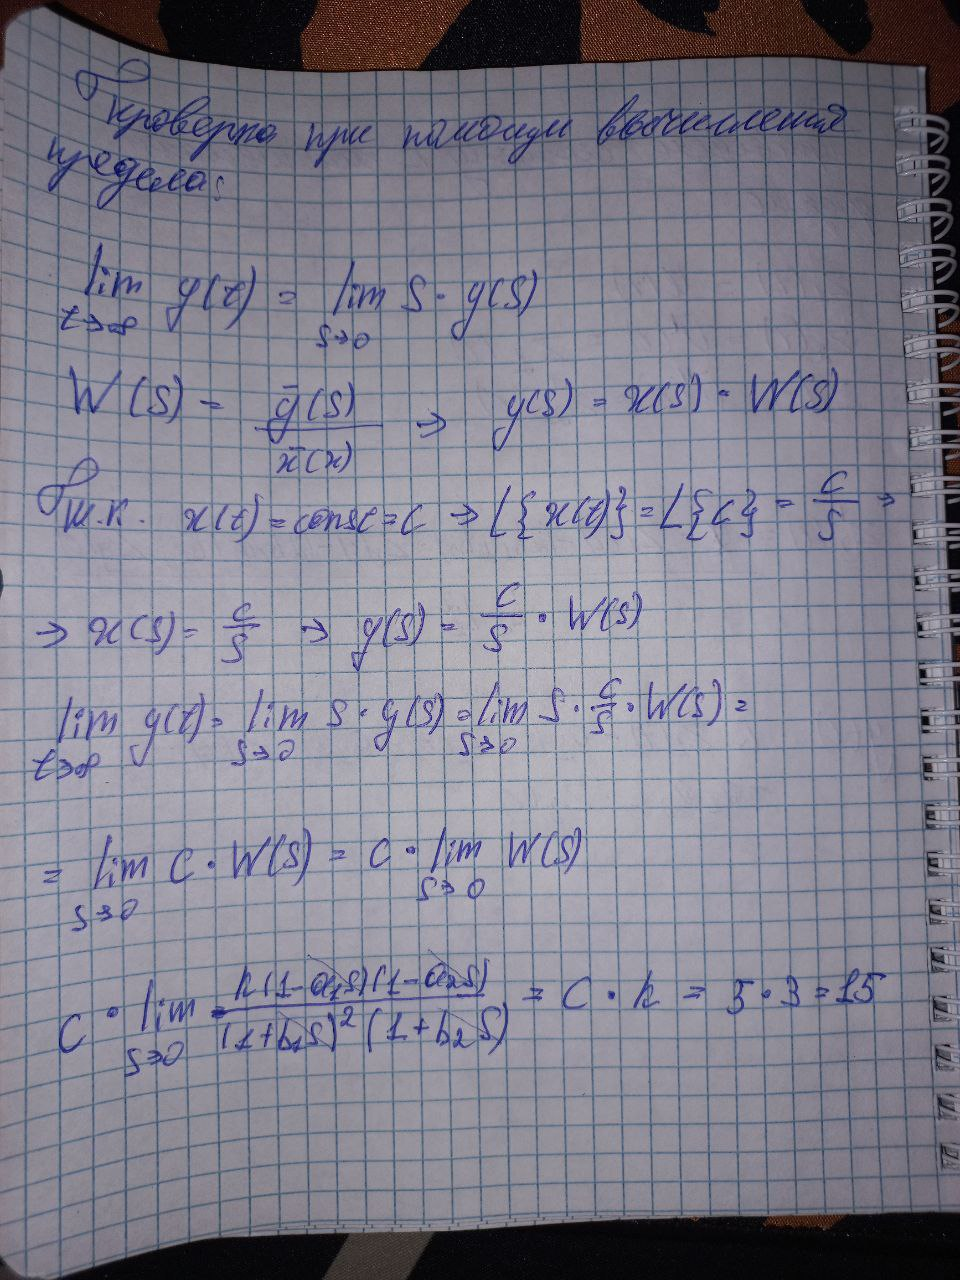 Проверка при помощи вычисления
предела:
lim y(t) = lim S · y(S)
t→∞ S→0
W(S) = ȳ(S) / x̄(x) → y(S) = x(S) · W(S)
Т.к. x(t) = const = C → L{x(t)} = L{C} = C/S →
→ x(S) = C/S → y(S) = C/S · W(S)
lim y(t) = lim S · y(S) = lim S · C/S · W(S) =
t→∞ S→0 S→0
= lim C · W(S) = C · lim W(S)
S→0 S→0
C · lim k(1-a₁S)(1-a₂S) / (1+b₁S)²(1+b₂S) = C · k = 5·3 = 15
S→0